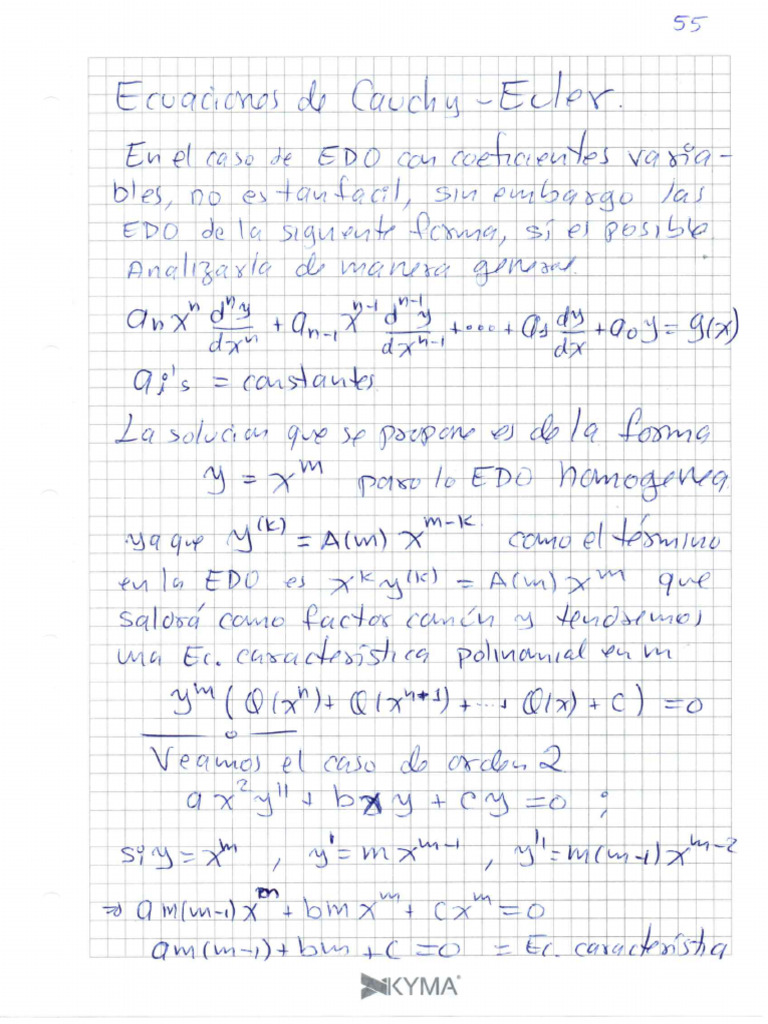 55
Ecuaciones de Cauchy-Euler.
En el caso de EDO con coeficientes varia-
bles, no es tan facil, sin embargo las
EDO de la siguiente forma, sí es posible
Analizarla de manera general.
aₙxⁿ dⁿy/dxⁿ + aₙ₋₁xⁿ⁻¹ dⁿ⁻¹y/dxⁿ⁻¹ + ... + a₁ dy/dx + a₀y = g(x)
aᵢ's = constantes
La solucion que se propone es de la forma
y = xᵐ para la EDO homogenea
ya que y⁽ᵏ⁾ = A(m) xᵐ⁻ᵏ como el término
en la EDO es xᵏy⁽ᵏ⁾ = A(m)xᵐ que
saldrá como factor común y tendremos
una Ec. caracteristica polinomial en m
yᵐ(O(xⁿ) + O(xⁿ⁺¹) + ... + O(x) + C) = 0
Veamos el caso de orden 2
ax²y'' + bxy + cy = 0 ;
si y = xᵐ , y' = mxᵐ⁻¹ , y'' = m(m-1)xᵐ⁻²
⇒ am(m-1)xᵐ + bmxᵐ + cxᵐ = 0
am(m-1) + bm + c = 0 = Ec. característica
KYMA